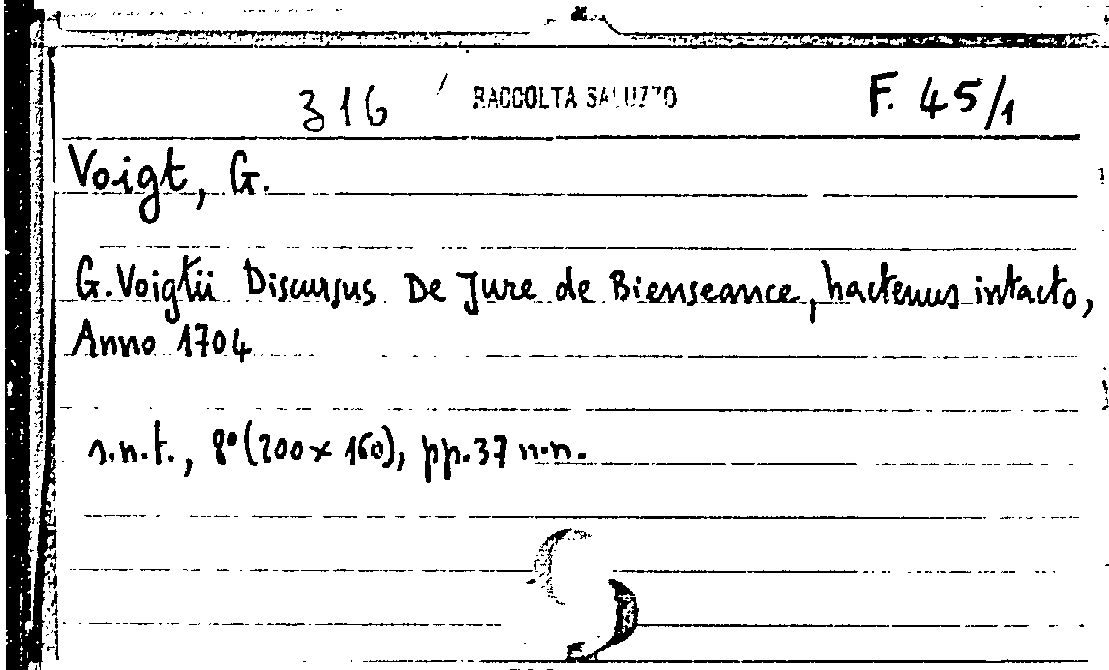 316 RACCOLTA SALUZZO F. 45/1
Voigt, G.
G. Voigtii Discursus De Jure de Bienseance, hactenus intacto,
Anno 1704
s.n.t., 8° (200 x 160), pp. 37 n.n.